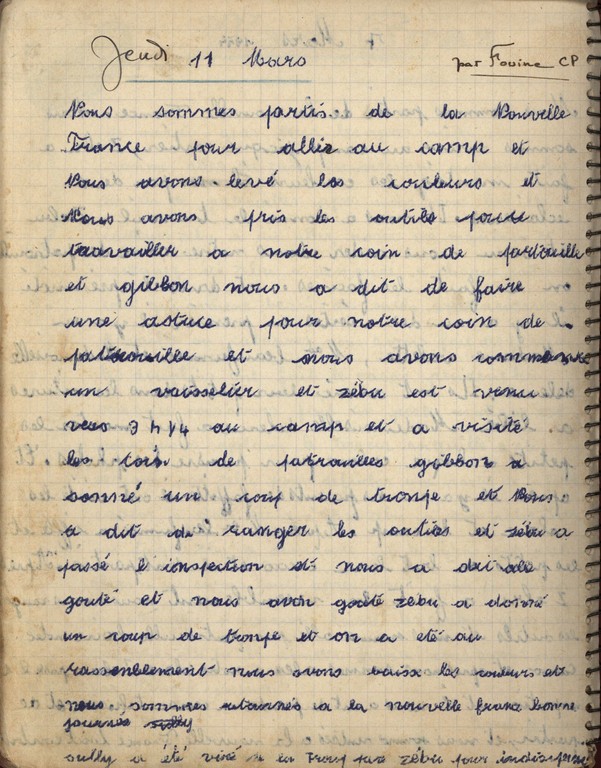 Jeudi 11 Mars
par Fouine CP
Nous sommes partis de la Nouvelle
France pour aller au camp et
Nous avons levé les couleurs et
Nous avons pris les outils pour
travailler a notre coin de partouille
et gibbon nous a dit de faire
une astuce pour notre coin de
patrouille et nous avons commencé
un vaisselier et zébu est venu
vers 3 h 1/4 au camp et a visité
les coin de patrouilles gibbon a
sonné un coup de trompe et Nous
a dit de ranger les outies et zébu a
passé l'inspection et nous a dit de
gouté et nous avon gouté zébu a donné
un coup de trompe et on a été au
rassemblement nous avons baiss les couleurs et
nous sommes retournés a la nouvelle franc bonne
journée
sully a été viré de la Troup par zébu pour